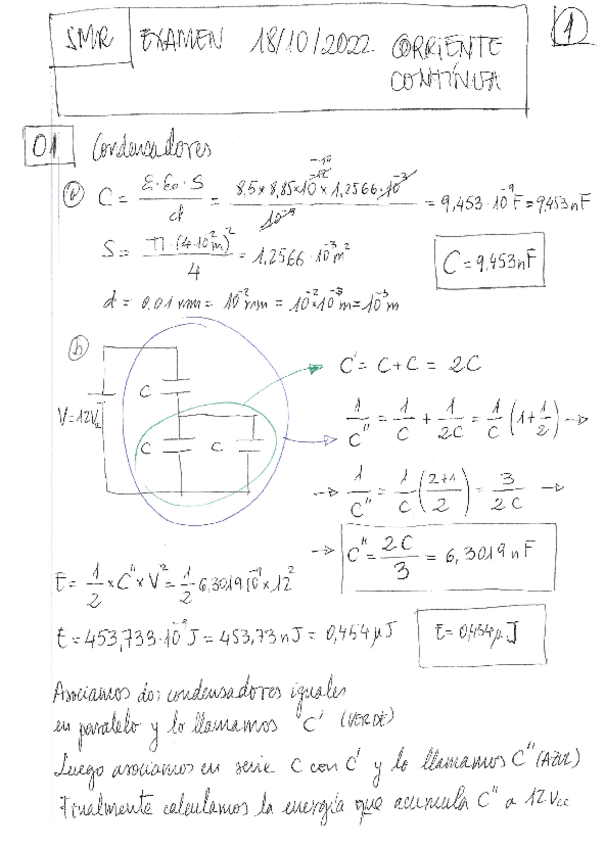 SMR EXAMEN 18/10/2022. CORRIENTE CONTÍNUA
1
01 Condensadores
a) C = ε·ε₀·S / d = 8.5 x 8,85x10⁻¹² x 1,2566·10⁻³ / 10⁻⁵ = 9,453·10⁻⁹ F = 9,453 nF
S = π·(4·10⁻² m)² / 4 = 1,2566·10⁻³ m²
C = 9,453 nF
d = 0,01 mm = 10⁻² mm = 10⁻² x 10⁻³ m = 10⁻⁵ m
b)
V = 12V
C
C C
C' = C + C = 2C
1/C'' = 1/C + 1/2C = 1/C (1 + 1/2) →
→ 1/C'' = 1/C (2+1 / 2) = 3/2C →
→ C'' = 2C/3 = 6,3019 nF
E = 1/2 x C'' x V² = 1/2 6,3019 10⁻⁹ x 12²
E = 453,733·10⁻⁹ J = 453,73 nJ = 0,454 μJ
E = 0,454 μJ
Asociamos dos condensadores iguales
en paralelo y lo llamamos C' (VERDE)
Luego asociamos en serie C con C' y lo llamamos C'' (AZUL)
Finalmente calculamos la energía que acumula C'' a 12 Vcc